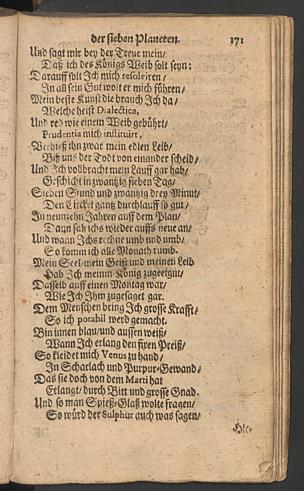 der sieben Planeten. 171
Und sagt mir bey der Treue mein/
Daß ich des Königs Weib solt seyn:
Darauff solt Ich mich resolviren/
In all sein Gut wolt er mich führen/
Mein beste Kunst die brauch Ich da/
Welche heist Dialectica,
Und red wie einem Weib gebührt/
Prudentia mich instituirt,
Verhieß ihn zwar mein edlen Leib/
Biß uns der Todt von einander scheid/
Und Ich vollbracht mein Lauff gar hab/
Geschicht in zwantzig sieben Tag/
Sieben Stund und zwantzig drey Minut/
Den Circkel gantz durchlauff is gut/
In neunzehn Jahren auff dem Plan/
Dann fah ichs wieder auffs neue an/
Und wann Ichs rechne umb und umb/
So komm ich alle Monath rumb.
Mein Seel mein Geist und meinen Leib
Hab Ich meinm König zugeeignt/
Dasselb auff einen Montag war/
Wie Ich Ihm zugesaget gar.
Dem Menschen bring Ich grosse Krafft/
So ich potabil werd gemacht.
Bin innen blau/und aussen weiß/
Wann Ich erlang den fixen Preiß/
So kleidet mich Venus zu hand/
In Scharlach und Purpur-Gewand/
Das sie doch von dem Marti hat
Erlangt/durch Bitt und grosse Gnad.
Und so man Spieß-Glaß wolte fragen/
So würd der Sulphur auch was sagen/